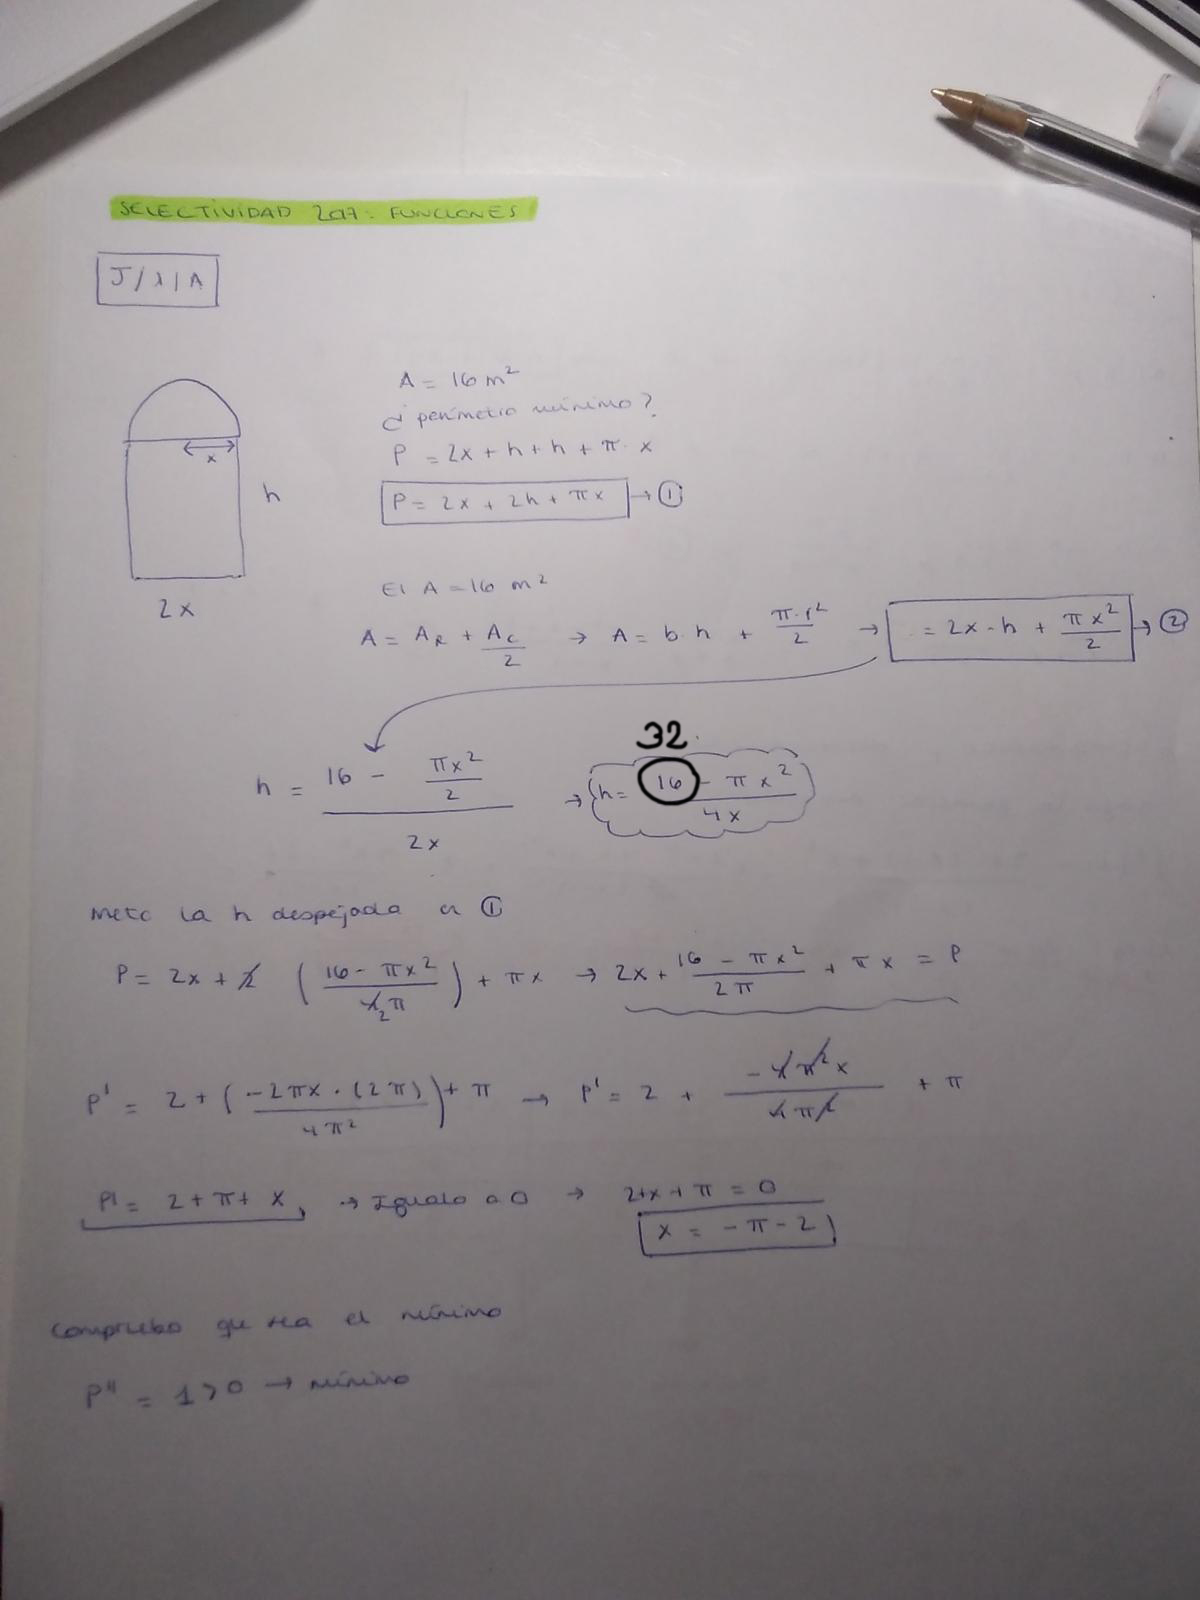 SELECTIVIDAD 2017: FUNCIONES
J/1/A
A = 16 m²
¿perímetro mínimo?
P = 2x + h + h + π · x
P = 2x + 2h + πx → ①
x
h
2x
El A = 16 m²
A = A_R + A_C/2 → A = b·h + π·r²/2 → = 2x·h + πx²/2 → ②
32
h = (16 - πx²/2)/2x → h = (16 - πx²)/4x
Meto la h despejada en ①
P = 2x + 2 ((16 - πx²)/4π) + πx → 2x + (16 - πx²)/2π + πx = P
2
P' = 2 + (-2πx · (2π)/4π²) + π → P' = 2 + -4π²x/4π² + π
P' = 2 + π + x → Igualo a 0 → 2+x+π = 0
x = -π - 2
Compruebo que sea el mínimo
P'' = 1 > 0 → mínimo